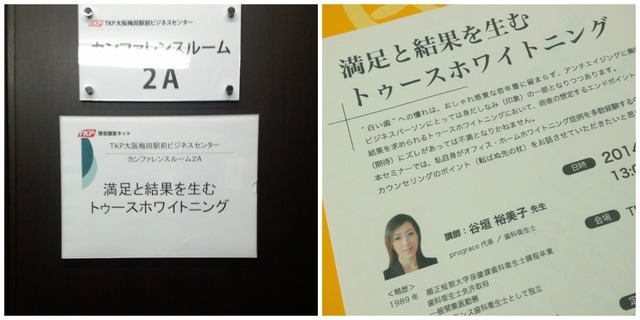 TKP TKP大阪梅田駅前ビジネスセンター
カンファレンスルーム
2A
TKP 貸会議室ネット
TKP大阪梅田駅前ビジネスセンター
カンファレンスルーム2A
満足と結果を生む
トゥースホワイトニング
満足と結果を生む
トゥースホワイトニング
"白い歯"への憧れは、おしゃれ感覚な若年層に留まらず、アンチエイジングに
ビジネスパーソンにとっては身だしなみ(印象)の一部となりつつあります。
結果を求められるトゥースホワイトニングにおいて、術者の想定するエンドポイント
(期待)にズレがあっては不満となりかねません。
本セミナーでは、私自身がオフィス・ホームホワイトニング症例を多数経験する
カウンセリングのポイント(転ばぬ先の杖)をお話させていただきたいと思
日時 2014
13:0
会場 T
講師:谷垣 裕美子 先生
prograce代表/歯科衛生士
<略歴>
1989年 順正短期大学保健課歯科衛生士課程卒業
歯科衛生士免許取得
一般開業医勤務
ンス歯科衛生士として独立